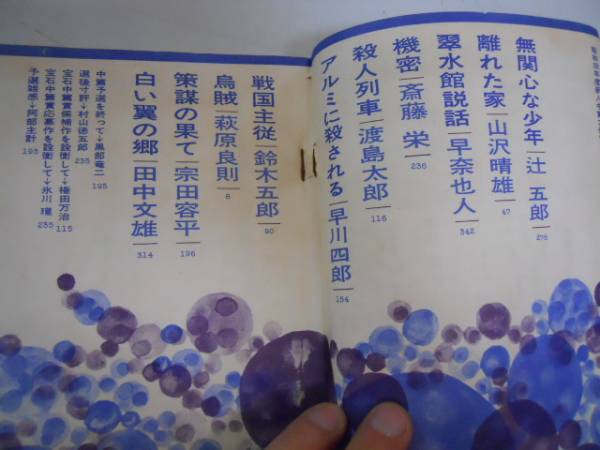 無関心な少年 辻 五郎 276
離れた家 山沢晴雄 47
翠水館説話 早奈也人 342
機密 斎藤 栄 236
殺人列車 渡島太郎 116
アルミに殺される 早川四郎 154
戦国主従 鈴木五郎 90
烏賊 萩原良則 8
策謀の果て 宗田容平 196
白い翼の郷 田中文雄 314
中篇予選を終って↓黒部竜二 195
選後寸評↓村山徳五郎 235
宝石中篇賞候補作を設衝して↓権田万治 115
宝石中篇賞応募作を設衝して↓氷川 瓏 235
予選雑感↓阿部主計 195